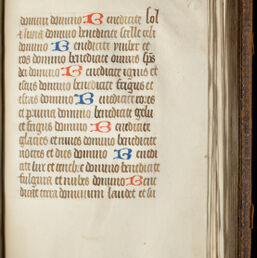 domini domino Benedicite sol
et luna domino benedicite stelle celi
domino Benedicite ymber et
ros domino benedicite omnis sps
dei domino Benedicite ignis et
estus domino benedicite frigus et
estas domino Benedicite rores
et pruina domino benedicite gelu
et frigus domino Benedicite
glacies et niues domino benedicite
noctes et dies domino Benedi
cite lux et tenebre domino benedicite
fulgura et nubes domino Bene
dicite terra dominum laudet et su